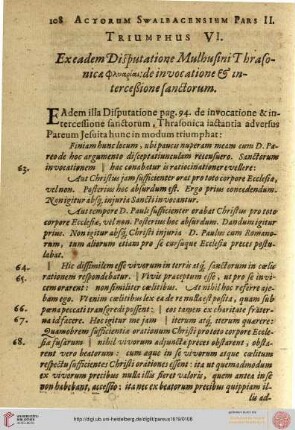 108 ACTORUM SWALBACENSIUM PARS II.
TRIUMPHUS VI.
Ex eadem Disputatione Mulhusini Thraso-
nica φλυαρία: de invocatione & in-
tercessione sanctorum.
EAdem illa Disputatione pag. 94. de invocatione & in-
tercessione sanctorum, Thrasonica iactantia adversus
Pareum Jesuita hunc in modum triumphat:
Finiam hunc locum, ubi paucis nuperam meam cum D. Pa-
reo de hoc argumento disceptatiunculam recensuero. Sanctorum
63. invocationem | hac conabatur is ratiocinatione evellere:
Aut Christus jam sufficienter orat pro tota corpore Ecclesiæ,
vel non. Posterius hoc absurdum est. Ergo prius concedendum.
Non igitur absq; injuria Sancti invocantur.
Aut tempore D. Pauli sufficienter orabat Christus pro toto
corpore Ecclesiæ, vel non. Posterius hoc absurdum. Dandum igitur
prius. Non igitur absq; Christi injuria D. Paulus cum Romano-
rum, tum aliorum etiam pro se cursuque Ecclesiæ preces postu-
labat.
64. | Hic dissimilem esse vivorum in terris atq; sanctorum in cœlis
65. rationem respondebat. | Vivis præceptum esse, ut pro se invi-
cem orarent: non similiter cœlitibus. At nihil hoc referre aje-
bam ego. Vt enim cælitibus lex ea de re nulla sit posita, quam sub
66. pœna peccati transgredi possent: | eos tamen ex charitate frater-
67. na id facere. Hoc igitur me jam | iterum atq; iterum quærere:
Quomobrem sufficientia orationum Christi pro toto corpore Eccle-
68. siæ fusarum | nihil vivorum adjuncta preces obstarent, obsta-
rent vero beatorum: cum aque in se vivorum atque cœlitum
respectu sufficientes Christi orationes essent: ita ut quemadmodum
ex vivorum precibus nulla illis sufficientia, quam antea in se
non habebant, accessio; ita nec ex beatorum precibus quippiam il-
lu ad-
http://digi.ub.uni-heidelberg.de/diglit/pareus1619/0108